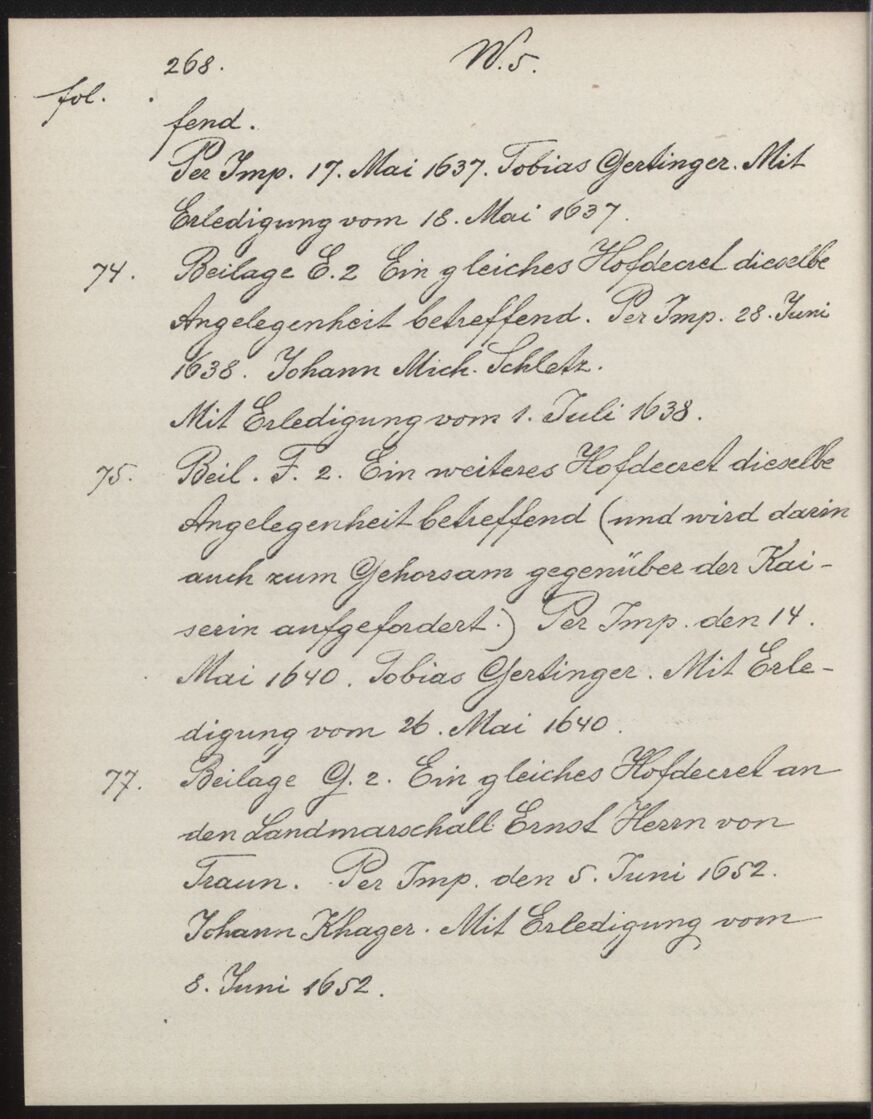 268. W. 5.
fol.
fend.
Per Imp. 17. Mai 1637. Tobias Gertinger. Mit
Erledigung vom 18. Mai 1637.
74. Beilage E. 2 Ein gleiches Hofdecret dieselbe
Angelegenheit betreffend. Per Imp. 28. Juni
1638. Johann Mich. Schletz.
Mit Erledigung vom 1. Juli 1638.
75. Beil. F. 2. Ein weiteres Hofdecret dieselbe
Angelegenheit betreffend (und wird darin
auch zum Gehorsam gegenüber der Kai-
serin aufgefordert.) Per Imp. den 14.
Mai 1640. Tobias Gertinger. Mit Erle-
digung vom 26. Mai 1640.
77. Beilage G. 2. Ein gleiches Hofdecret an
den Landmarschall Ernst Herrn von
Traun. Per Imp. den 5. Juni 1652.
Johann Khager. Mit Erledigung vom
8. Juni 1652.